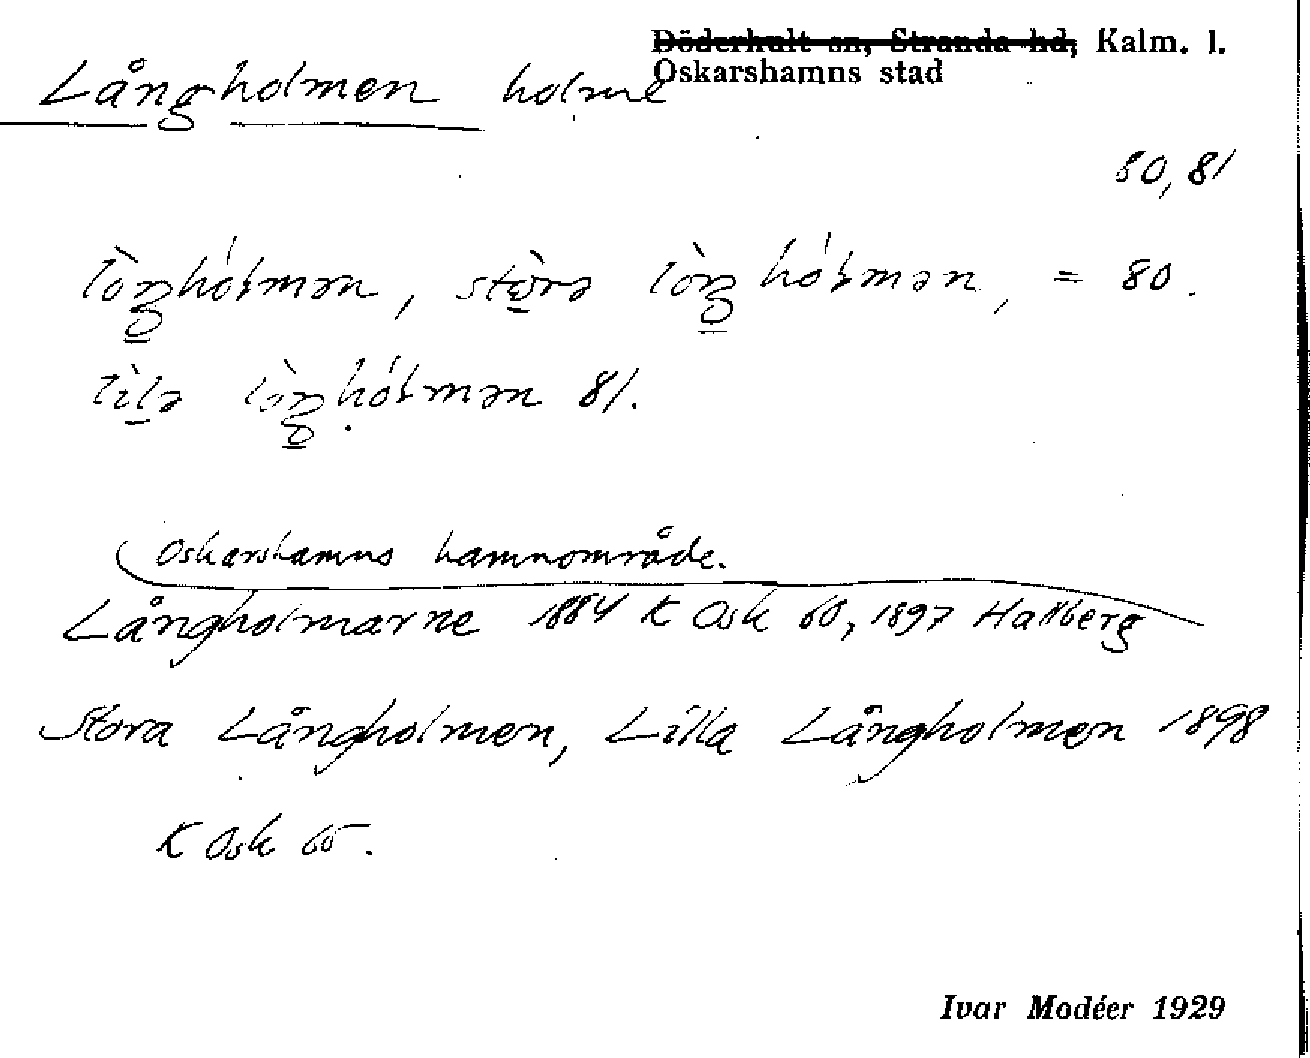 Döderhult sn, Stranda hd, Kalm. l.
Oskarshamns stad
Långholmen holme
80, 81
lòŋhólmən, stòrə lòŋ hólmən, = 80.
lìlə lòŋhólmən 81.
Oskarshamns hamnområde.
Långholmarne 1884 K Osk 60, 1897 Hallberg
Stora Långholmen, Lilla Långholmen 1898
K Osk
Ivar Modéer 1929